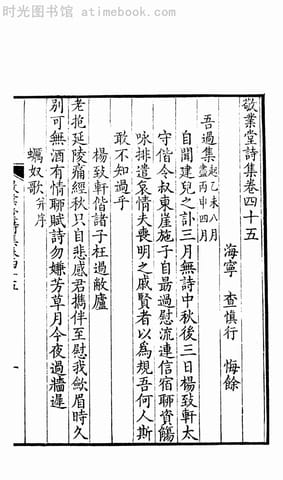 时光图书馆 — atimebook.com
敬業堂詩集卷四十五
海寧 查慎行 悔餘
吾過集 起乙未八月盡丙申四月
自聞建兒之訃三月無詩中秋後三日楊致軒太
守偕令叔東崖施子自最過慰流連信宿聊資觴
咏排遣哀情夫喪明之戚賢者以為規吾何人斯
敢不知過乎
楊致軒偕諸子枉過敝廬
老抱延陵痛經秋只自悲感君擕伴至慰我歛眉時久
別可無酒有情聊賦詩勿嫌芳草月今夜過牆遲
蠣奴歌 并序